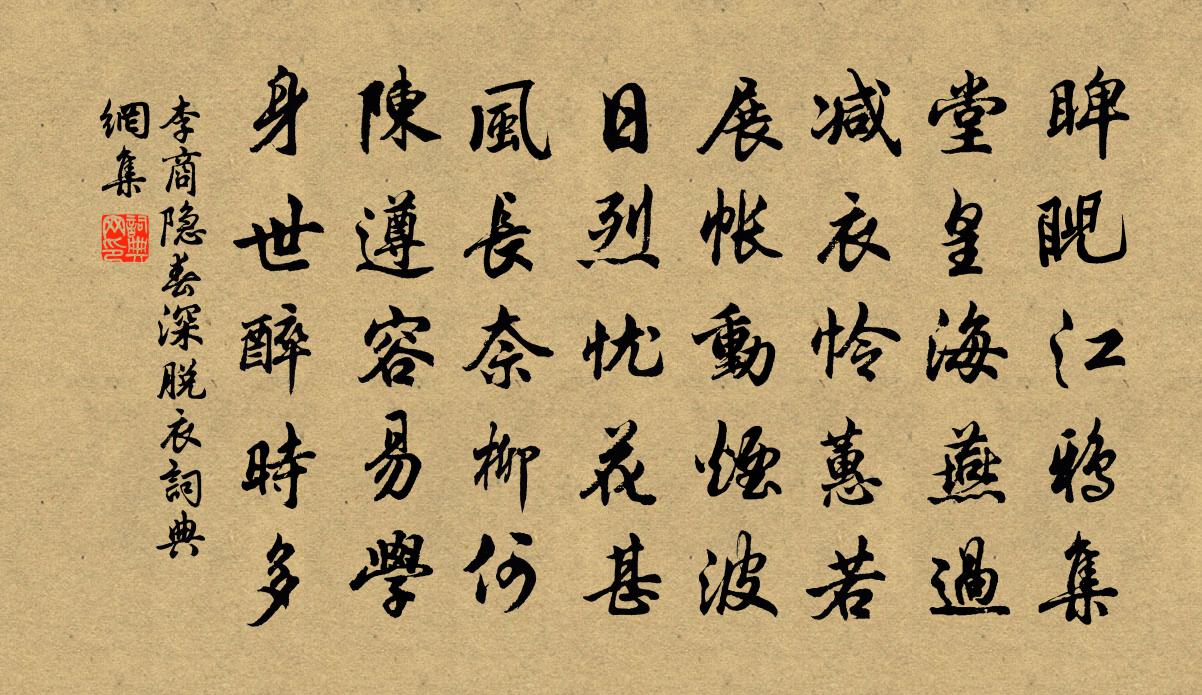 睥睨江鸦集
堂皇海燕過
减衣怜蕙若
展帐動煙波
日烈忧花甚
風長奈柳何
陳遵容易學
身世醉時多
李商隐春深脱衣詞典
網集
詞典
网印